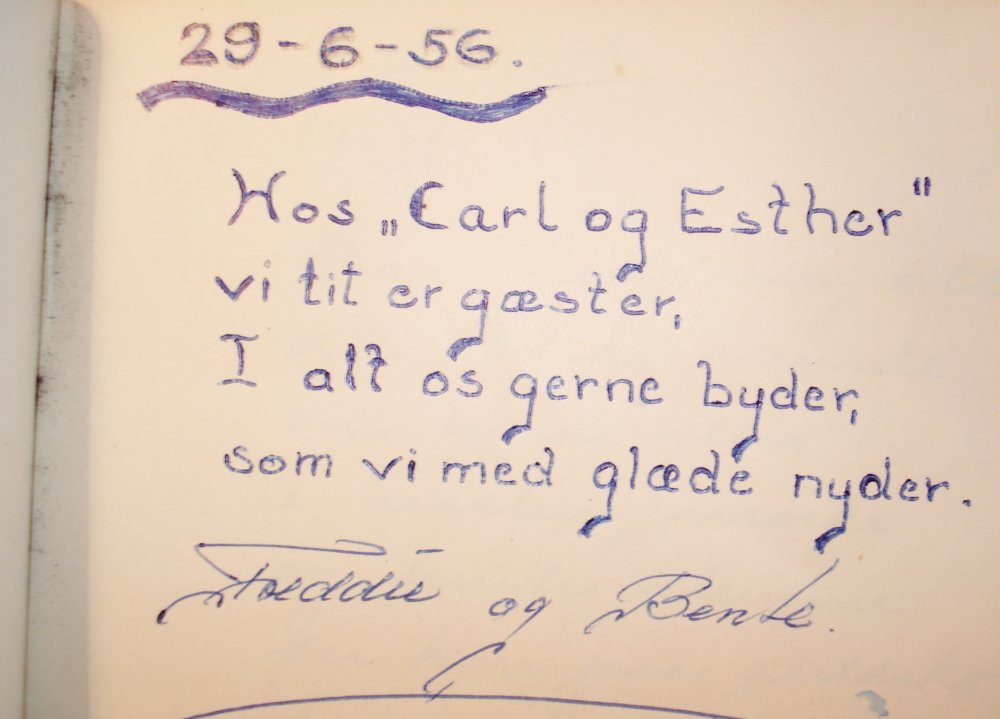 29-6-56.
Hos „Carl og Esther"
vi tit er gæster,
I alt os gerne byder,
som vi med glæde nyder.
Freddie og Bente.